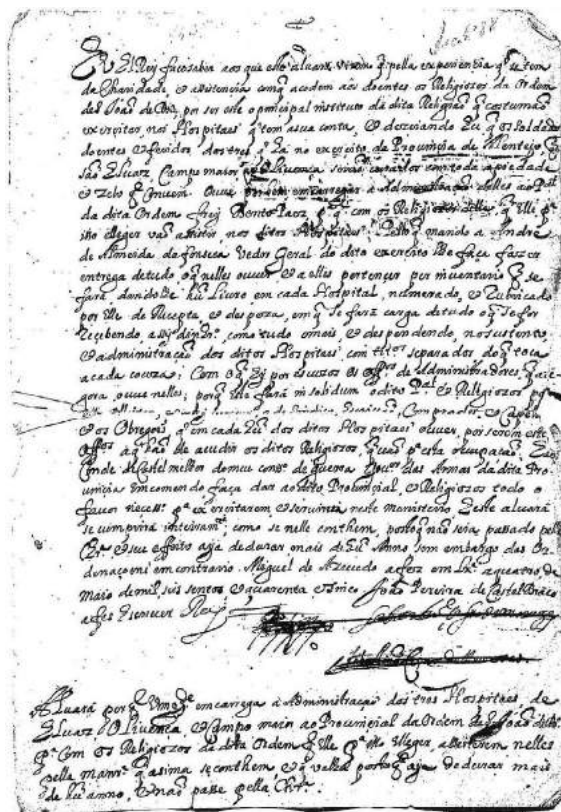 Eu El Rey faço saber aos que este alvara virem q̃ pella experiencia q̃ se tem
da Charidade, e asistencia comq̃ acodem aos doentes os Religiozos da Ordem
de S João de Ds, por ser este o principal instituto da dita Religião q̃ costumão
exercitar nos Hospitaes q̃ tem a sua conta, e dezeiando Eu q̃ os soldados
doentes e feridos, dos tres q̃ ha no exercito da Provincia de Alentejo, q̃
são Eluas Campo maior, e Oliuença curados com toda a piedade
e zelo q̃ conuem. Ouue por bem encarregar a Administração delles ao Pal
da dita Ordem frey Bento Paez pa q̃ com os Religiozos della, q̃ elle pa
isso elleger vão asistir nos ditos Hospitaes; Pello q̃ mando a André
de Almeida da fonseca Vedor Geral do dito exercito lhe faça fazer
entrega de tudo o q̃ nelles ouuer, e a elles pertencer per inventario q̃ se
fará, dandolhe hũ Livro em cada Hospital, numerado, e Rubricado
por elle de Recepta, e despeza, em q̃ se fará carga de tudo o q̃ se for
recebendo, assy dinro, como tudo o mais, e despendendo, no sustento,
e administração dos ditos Hospitaes, com titos separados do q̃ toca
a cada couza; Com o q̃ Ey por escusos os offes de Administradores q̃ athe
gora ouue nelles; porq̃ fará in solidum o dito Pal e Religiozos
Comprador, e Capelão
e os Obregois, q̃ em cada hũ dos ditos Hospitaes ouuer, por serem este
offos a q̃ hão de acudir os ditos Religiozos, q̃ vão pa esta ocupação; E ao
Conde de Castelmelhor do meu conso de guerra Gouor das Armas da dita Pro
uincia encomendo faça dar ao dito Prouincial, e Religiozos todo o
fauor necesso pa exercitarem e seruirem neste menisterio. E este aluará
se cumprirá inteiramte, como se nelle conthem, posto q̃ não seja passado pella
Chra e seu effeito aja de durar mais de hũ Anno sem embargo das Or
denações em contrario. Miguel de Azevedo a fez em Lxa a quatro de
Maio de mil, seis sentos e quarenta e sinco João Pereira de Castel Branco
a fez escreuer Rey
Aluará por q̃ VMagde encarrega a Administração dos tres Hospitaes de
Eluas, Oliuença, e Campo maior ao Prouincial da Ordem de S João de Ds
pa q̃ Com os Religiozos da dita Ordem q̃ elle pa isso elleger, asistirem nelles
pella manra q̃ asima se conthem, e q̃ valha posto q̃ aja de durar mais
de hũ anno, e não passe pella Chra.